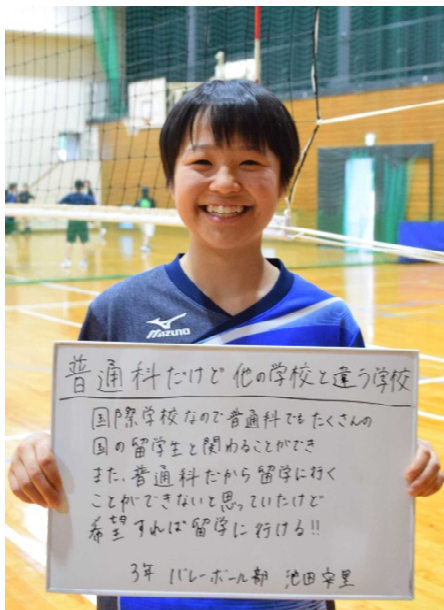 MIZUNO
普通科だけど他の学校と違う学校
国際学校なので普通科でもたくさんの
国の留学生と関わることができ
また、普通科だから留学に行く
ことができないと思っていたけど
希望すれば留学に行ける!!
3年 バレーボール部 池田